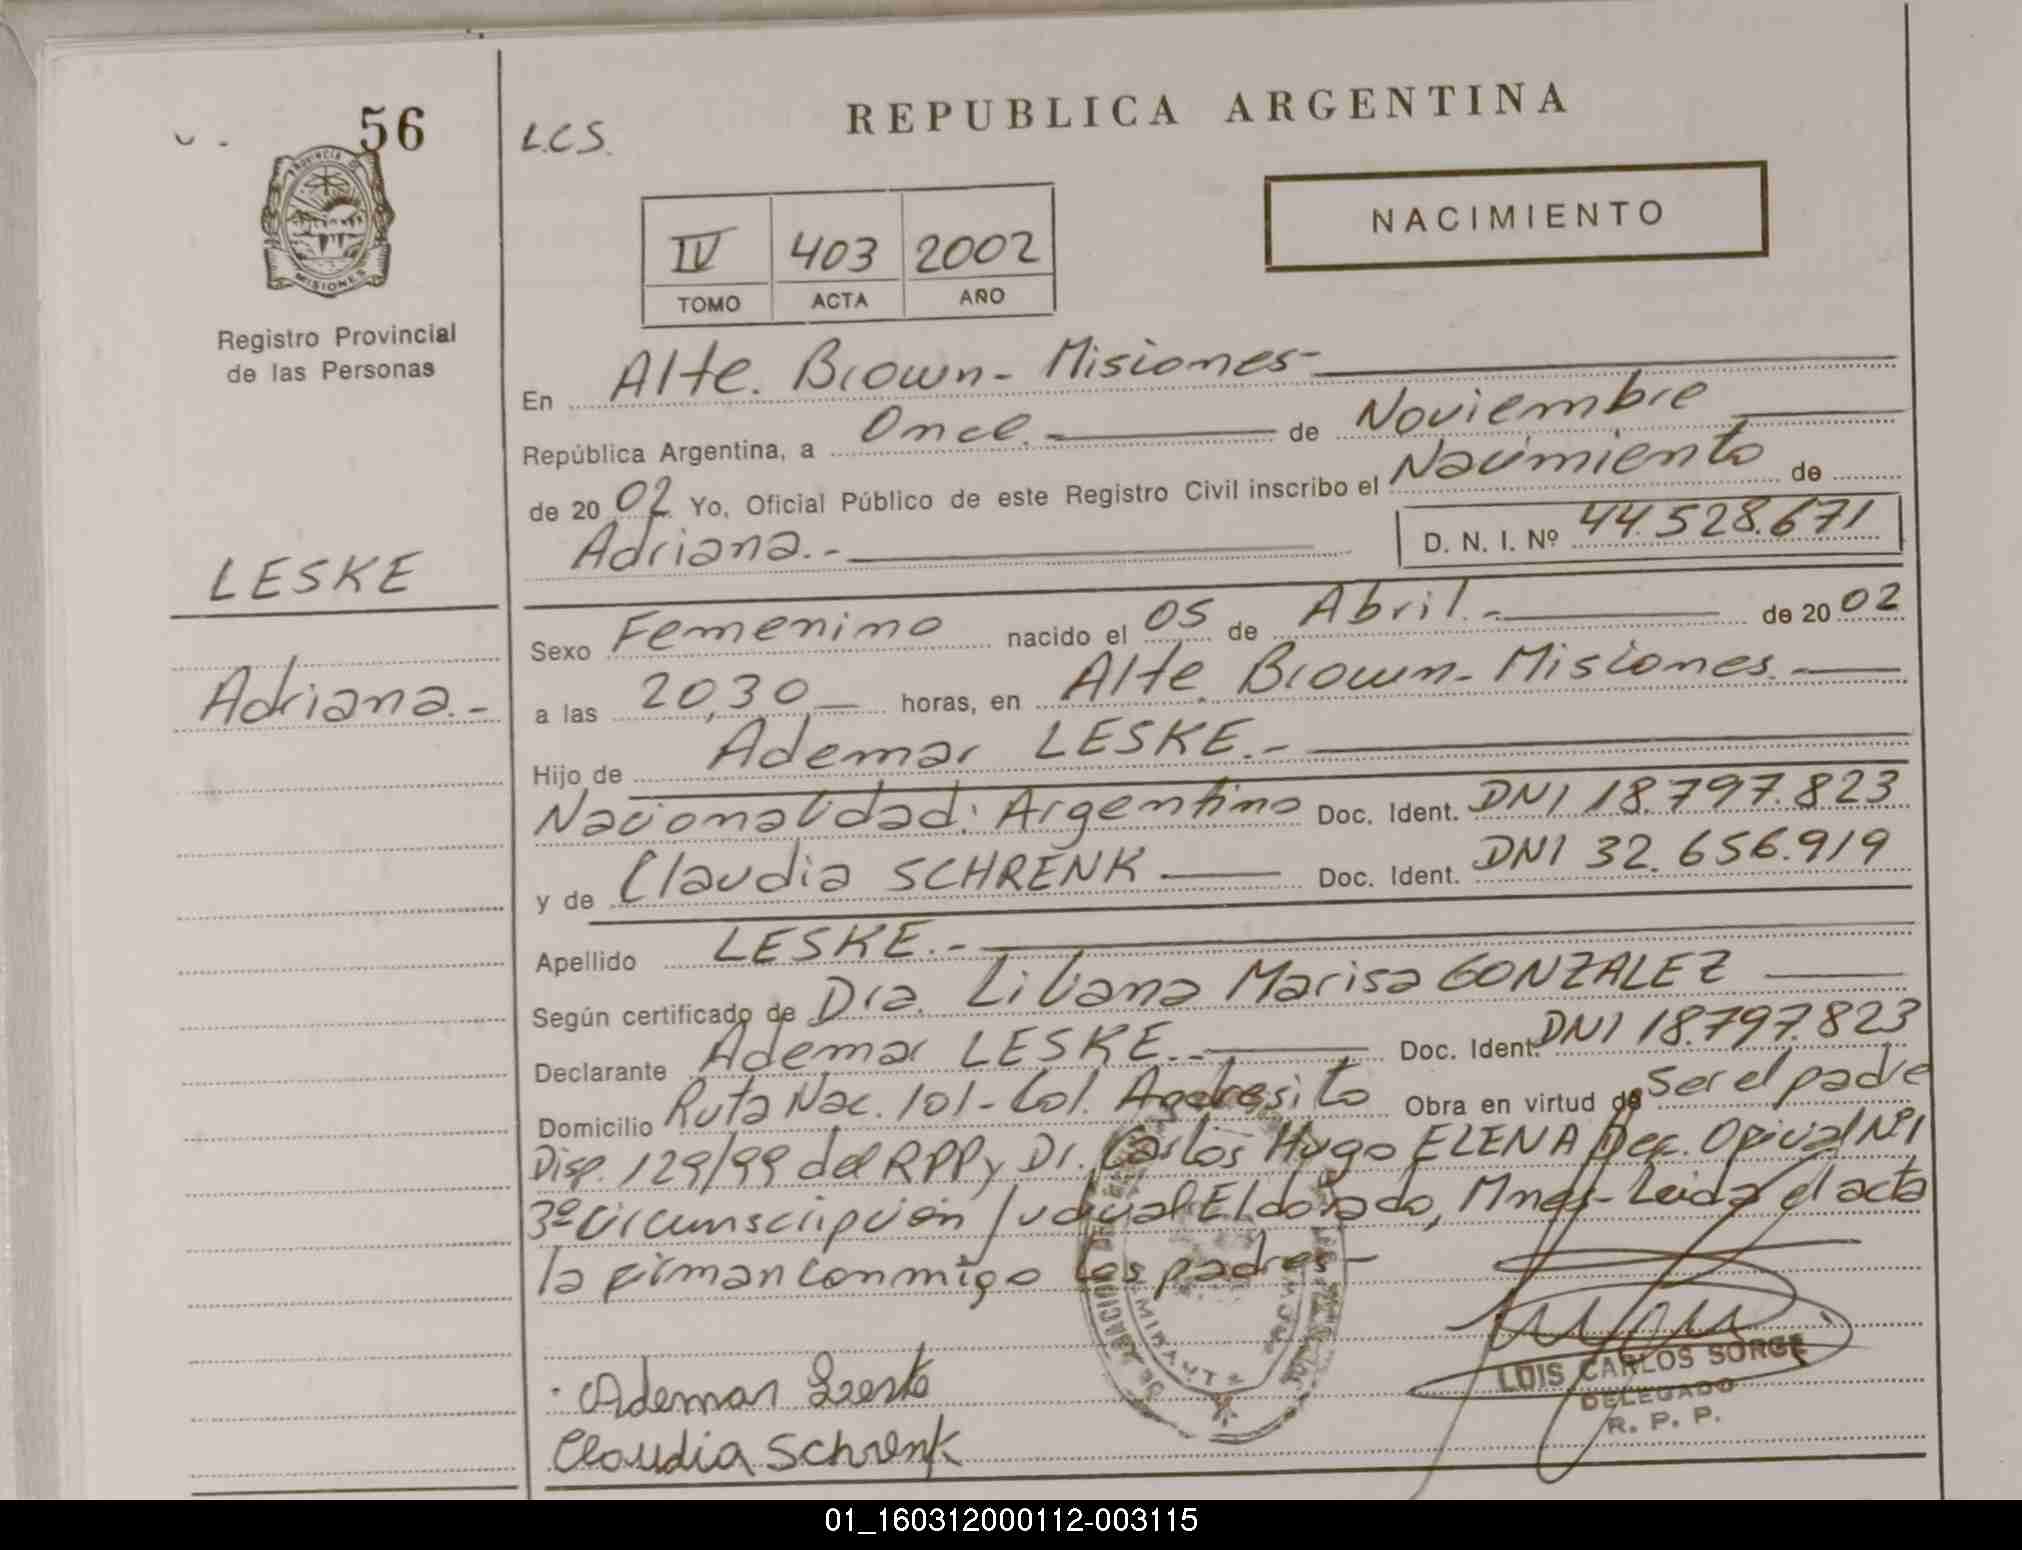 56
L.C.S.
REPUBLICA ARGENTINA
PROVINCIA DE
MISIONES
NACIMIENTO
IV 403 2002
TOMO ACTA AÑO
Registro Provincial
de las Personas
En Alte. Brown - Misiones -
República Argentina, a Once. de Noviembre
de 20 02 Yo, Oficial Público de este Registro Civil inscribo el Nacimiento de
Adriana.- D. N. I. Nº 44.528.671
LESKE
Adriana.-
Sexo Femenino nacido el 05 de Abril.- de 20 02
a las 20,30 horas, en Alte Brown - Misiones.-
Hijo de Ademar LESKE.-
Nacionalidad: Argentino Doc. Ident. DNI 18.797.823
y de Claudia SCHRENK Doc. Ident. DNI 32.656.919
Apellido LESKE.-
Según certificado de Dra. Liliana Marisa GONZALEZ
Declarante Ademar LESKE.- Doc. Ident. DNI 18.797.823
Domicilio Ruta Nac. 101 - Col. Andresito Obra en virtud de Ser el padre
Disp. 129/99 del RPP y Dr. Carlos Hugo ELENA Def. Oficial Nº1
3º Circunscripción Judicial Eldorado, Mnes - Leida el acta
la firman conmigo los padres -
Ademar
Claudia Schrenk
LUIS CARLOS SORGE
DELEGADO
R. P. P.
01_160312000112-003115